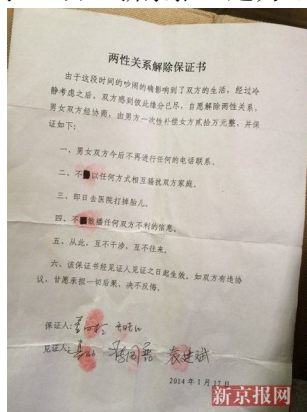 两性关系解除保证书
由于这段时间的吵闹的确影响到了双方的生活，经过冷
静考虑之后，双方感到彼此缘分已尽，自愿解除两性关系，
男女双方经协商，由男方一次性补偿女方贰拾万元整，并保
证如下：
一、男女双方今后不再进行任何的电话联系。
二、不以任何方式相互骚扰双方家庭。
三、即日去医院打掉胎儿。
四、不散播任何双方不利的信息。
五、从此，互不干涉，互不往来。
六、该保证书经见证人见证之日起生效，如双方有违协
议，甘愿承担一切后果，决不反悔。
保证人：
见证人：
2014年1月17日
新京报网